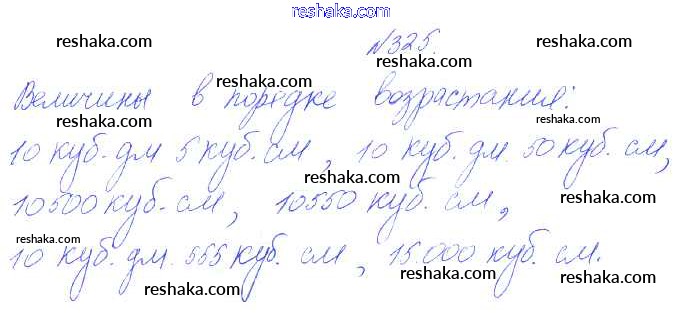 reshaka.com
reshaka.com reshaka.com
№325.
reshaka.com
reshaka.com
Величины в порядке возрастания:
reshaka.com reshaka.com
10 куб. дм 5 куб. см, 10 куб. дм 50 куб. см,
reshaka.com
10500 куб. см, 10550 куб. см,
reshaka.com reshaka.com
10 куб. дм. 555 куб. см, 15.000 куб. см.
reshaka.com reshaka.com reshaka.com